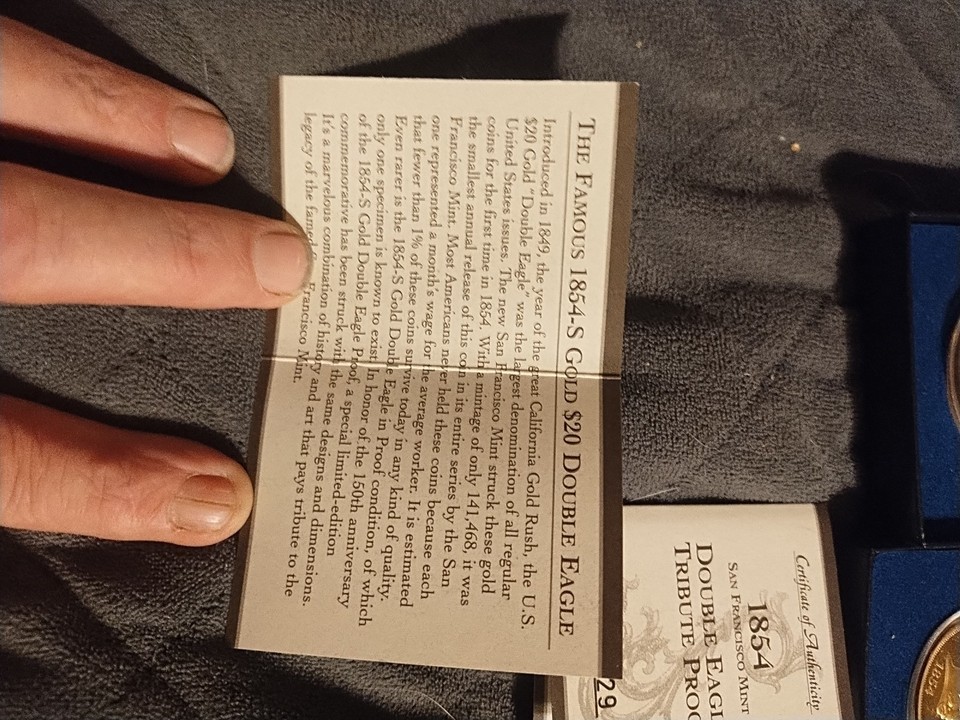 THE FAMOUS 1854-S GOLD $20 DOUBLE EAGLE
Introduced in 1849, the year of the great California Gold Rush, the U.S.
$20 Gold "Double Eagle" was the largest denomination of all regular
United States issues. The new San Francisco Mint struck these gold
coins for the first time in 1854. With a mintage of only 141,468, it was
the smallest annual release of this coin in its entire series by the San
Francisco Mint. Most Americans never held these coins because each
one represented a month's wage for the average worker. It is estimated
that fewer than 1% of these coins survive today in any kind of quality.
Even rarer is the 1854-S Gold Double Eagle in Proof condition, of which
only one specimen is known to exist. In honor of the 150th anniversary
of the 1854-S Gold Double Eagle Proof, a special limited-edition
commemorative has been struck with the same designs and dimensions.
It's a marvelous combination of history and art that pays tribute to the
legacy of the famed Francisco Mint.
Certificate of Authenticity
1854
SAN FRANCISCO MINT
DOUBLE EAGL
TRIBUTE PROO
29
1854